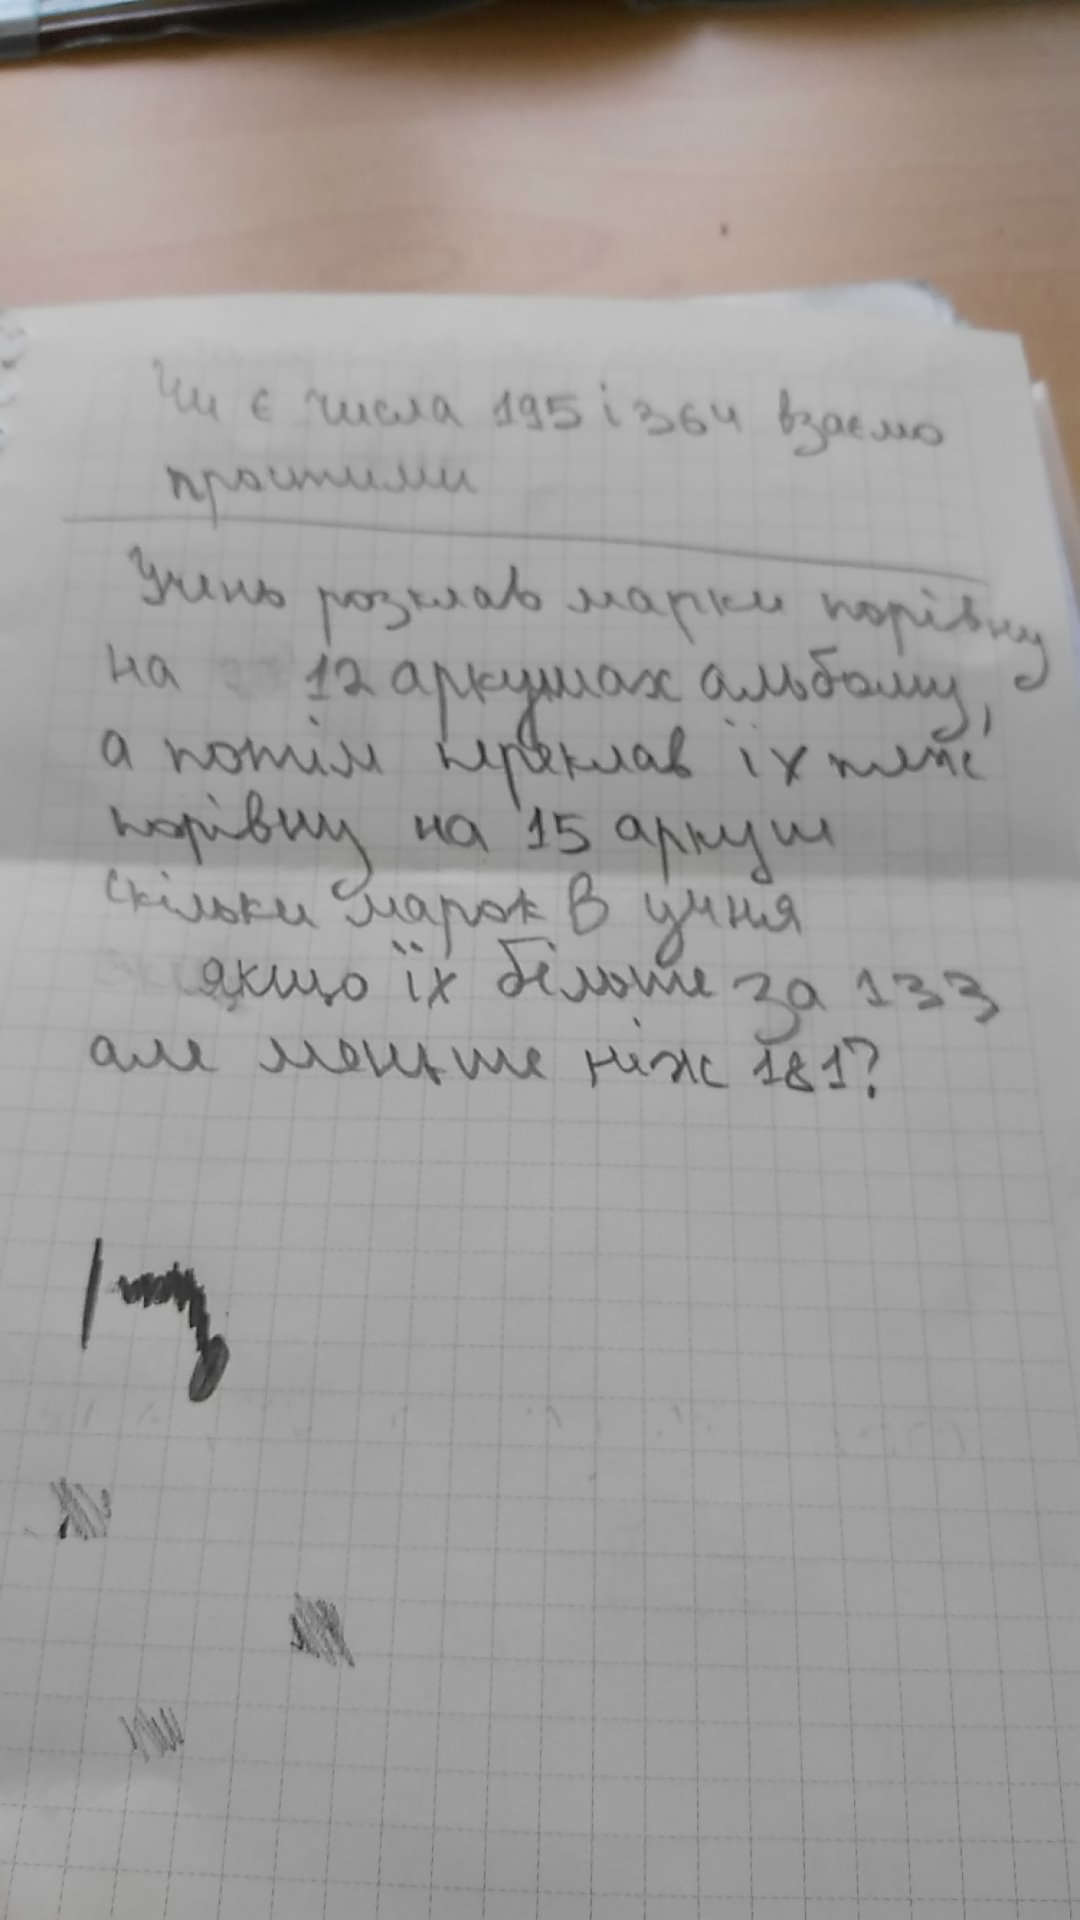 Чи є числа 195 і 364 взаємо
простими
Учень розклав марки порівну
на 12 аркушах альбому,
а потім переклав їх теж
порівну на 15 аркуш
скільки марок в учня
якщо їх більше за 133
але менше ніж 181?